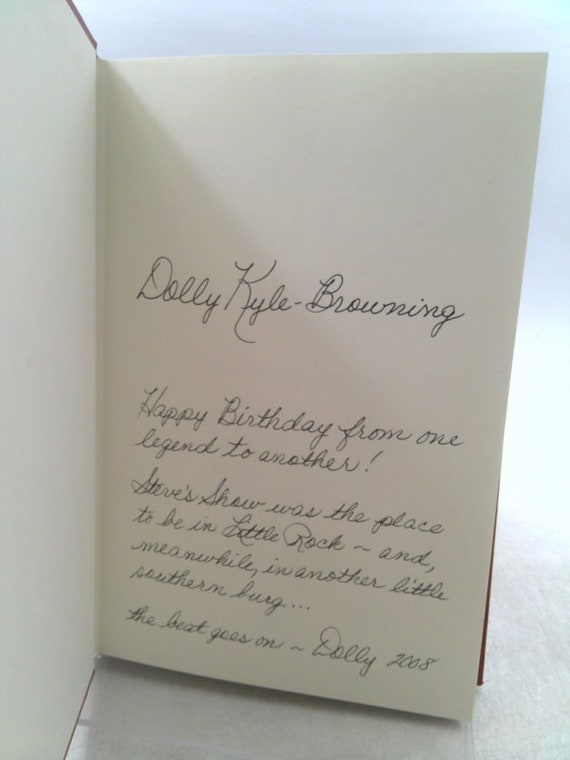 Dolly Kyle-Browning
Happy Birthday from one
legend to another!
Steve's Show was the place
to be in Little Rock ~ and,
meanwhile, in another little
southern burg...
the beat goes on ~ Dolly 2008